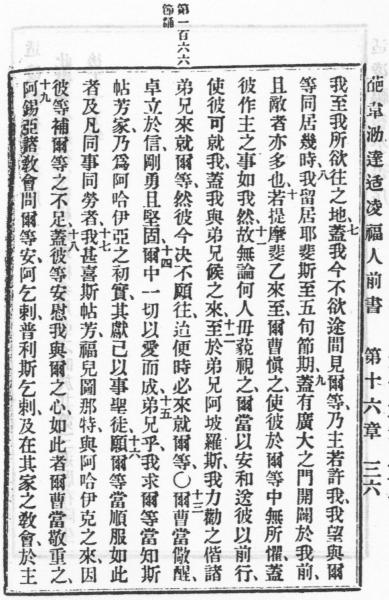 葩韋泐達适凌福人前書 第十六章 三六
第一百六六
誦
我至我所欲往之地、七蓋我今不欲途間見爾等、乃主若許我、我望與爾
等同居幾時、八我留居耶斐斯至五旬節期、九蓋有廣大之門開闢於我前、
且敵者亦多也、十若提摩斐乙來至爾曹、慎之、使彼於爾等中無所懼、蓋
彼作主之事如我然、十一故無論何人毋藐視之、爾當以安和送彼以前行、
使彼可就我、蓋我與弟兄候之來、十二至於弟兄阿坡羅斯、我力勸之偕諸
弟兄來就爾等、然彼今決不願往、迨便時必來就爾等〇十三爾曹當儆醒、
卓立於信、剛勇且堅固、十四爾中一切以愛而成、十五弟兄乎、我求爾等、當知斯
帖芳家乃爲阿哈伊亞之初實、其獻已以事聖徒、十六願爾等當順服如此
者及凡同事同勞者、十七我甚喜斯帖芳、福兒圖那特、與阿哈伊克之來、因
彼等補爾等之不足、十八蓋彼等安慰我與爾之心、如此者爾曹當敬重之、
十九阿錫亞諸教會問爾等安、阿乞剌、普利斯乞剌、及在其家之教會、於主